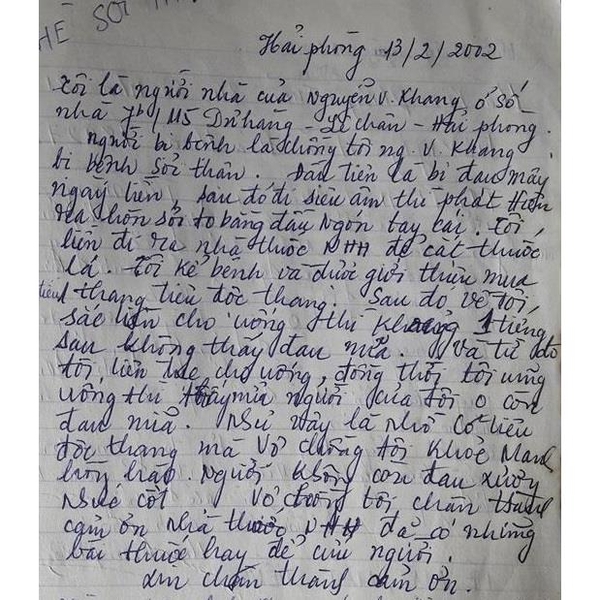 HỆ SỎI TH
Hải phòng 13/2/2002
Tôi là người nhà của Nguyễn V. Khang ở số
nhà 7b/115 Dư hàng - Lê chân - Hải phòng.
người bị bệnh là chồng tôi ng. V. Khang
bị bệnh sỏi thận. Đầu tiên là bị đau mấy
ngày liền, sau đó đi siêu âm thì phát hiện
ra hòn sỏi to bằng đầu ngón tay cái. Tôi,
liền đi ra nhà thuốc NHH để cắt thuốc
lá. Tôi kể bệnh và được giới thiệu mua
thang tiêu độc thang. Sau đó về tôi,
sắc liền cho uống thì khoảng 1 tiếng
sau không thấy đau nữa. Và từ đó
tôi, liên tục cho uống, đồng thời tôi cũng
uống thì người của tôi o còn
đau nữa. Như vậy là nhờ có tiêu
độc thang mà Vợ chồng tôi khoẻ Mạnh
hồng hào. Người không còn đau xương
Nhức cốt. Vợ chồng tôi chân thành
cảm ơn nhà thuốc NHH đã có những
bài thuốc hay để cứu người.
xin chân thành cảm ơn.